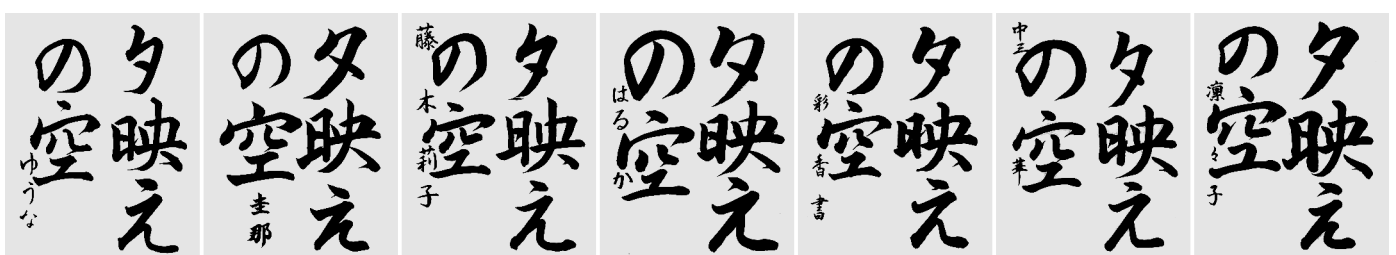 夕映え
の空
ゆうな
夕映え
の空
圭那
夕映え
の空
藤木莉子
夕映え
の空
はるか
夕映え
の空
彩香書
夕映え
の空
中三 華
夕映え
の空
凜々子